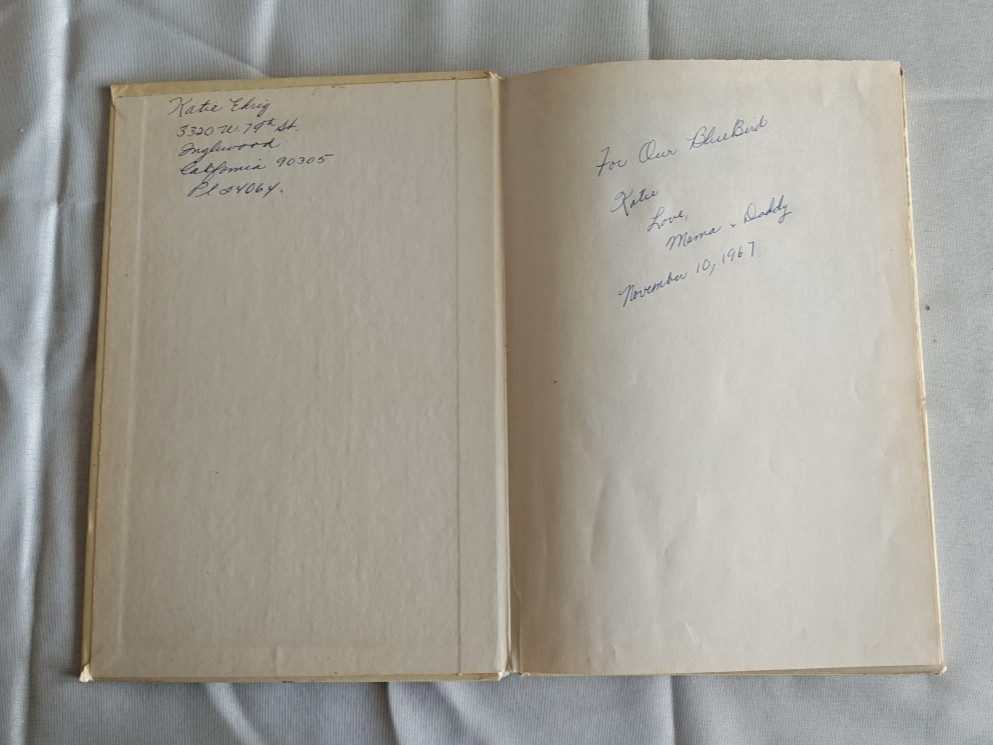 Katie Ehrig
3320 W. 79th St.
Inglewood
California 90305
Pl 24064.
For Our BlueBird
Katie
Love,
Mama + Daddy
November 10, 1967